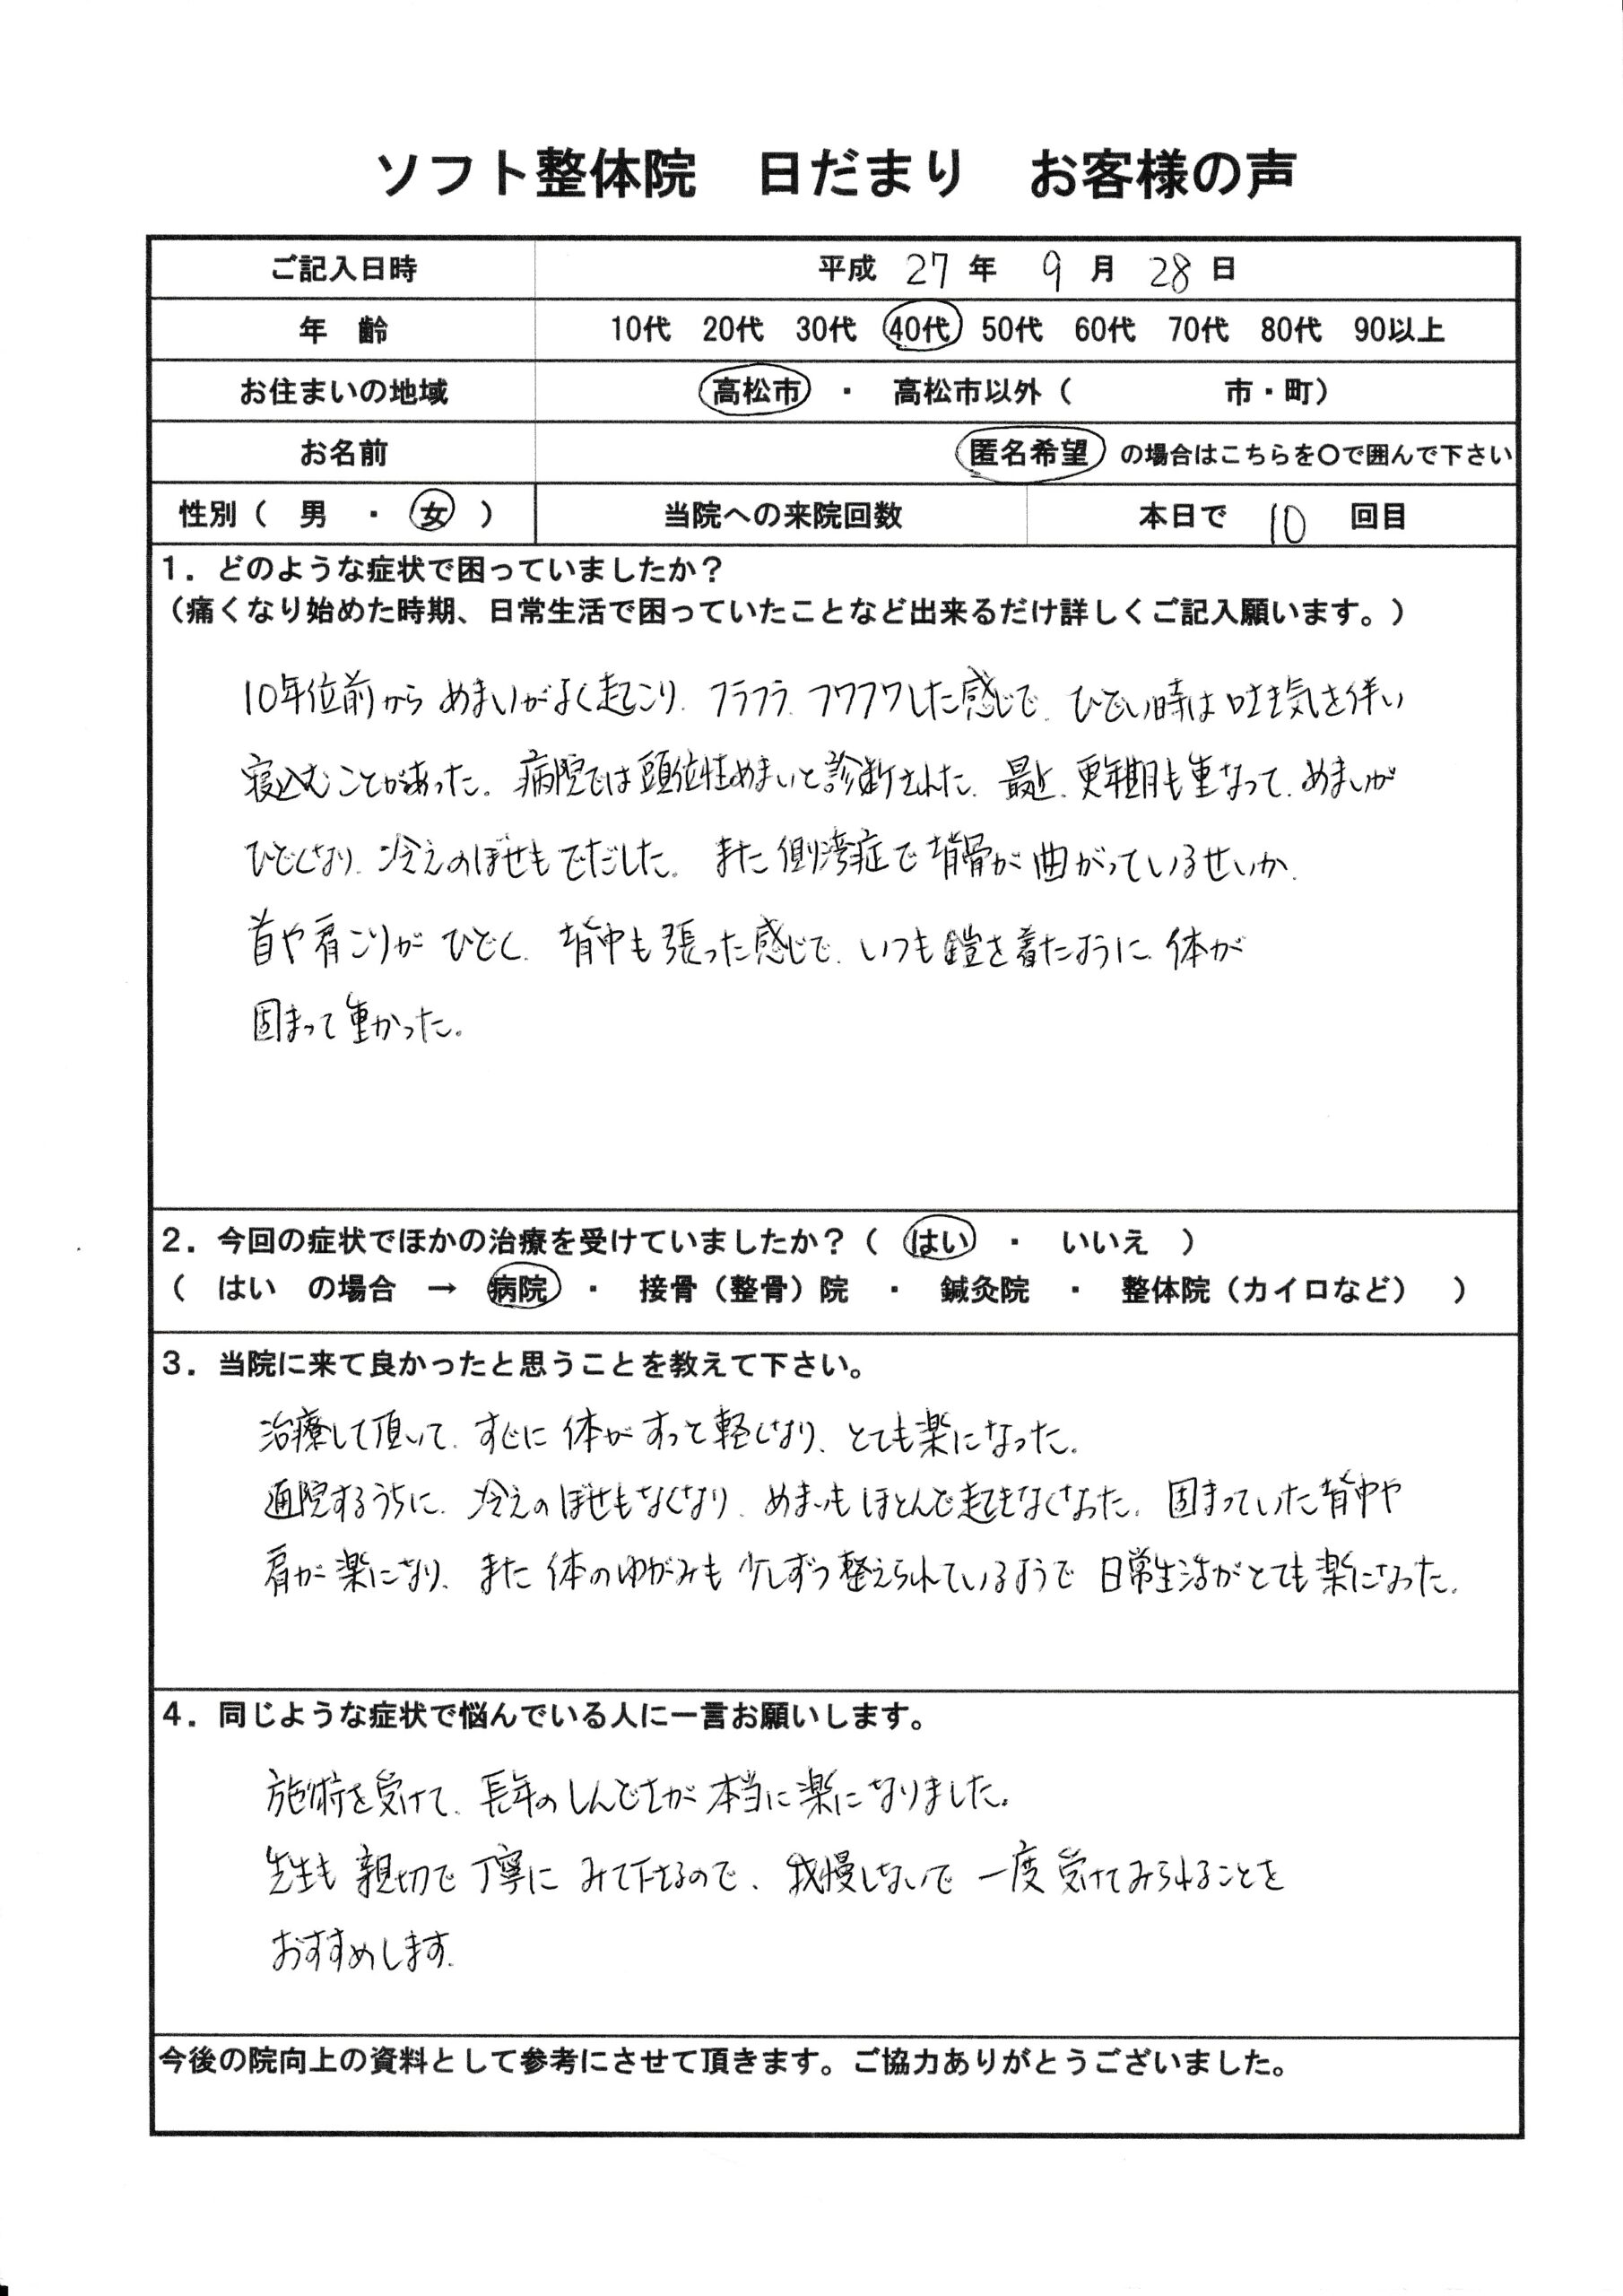 ソフト整体院　日だまり　お客様の声
ご記入日時　平成 27 年 9 月 28 日
年　齢　10代　20代　30代　40代　50代　60代　70代　80代　90以上
お住まいの地域　高松市　・　高松市以外（　　　　市・町）
お名前　匿名希望 の場合はこちらを〇で囲んで下さい
性別（　男　・　女　）　当院への来院回数　本日で　10　回目
1．どのような症状で困っていましたか？
（痛くなり始めた時期、日常生活で困っていたことなど出来るだけ詳しくご記入願います。）
10年位前から めまいがよく起こり、フラフラ、フワフワした感じで、ひどい時は吐き気を伴い
寝込むことがあった。病院では頭位性めまいと診断された。最近、更年期も重なって、めまいが
ひどくなり、冷えのぼせもでだした。また側湾症で背骨が曲がっているせいか、
首や肩こりがひどく、背中も張った感じで、いつも鎧を着たように体が
固まって重かった。
2．今回の症状でほかの治療を受けていましたか？（　はい　・　いいえ　）
（　はい　の場合　→　病院　・　接骨（整骨）院　・　鍼灸院　・　整体院（カイロなど）　）
3．当院に来て良かったと思うことを教えて下さい。
治療して頂いて、すぐに体がすっと軽くなり、とても楽になった。
通院するうちに、冷えのぼせもなくなり、めまいもほとんど起きなくなった。固まっていた背中や
肩が楽になり、また体のゆがみも少しずつ整えられているようで日常生活がとても楽になった。
4．同じような症状で悩んでいる人に一言お願いします。
施術を受けて、長年のしんどさが本当に楽になりました。
先生も親切で丁寧にみて下さるので、我慢しないで一度受けてみられることを
おすすめします。
今後の院向上の資料として参考にさせて頂きます。ご協力ありがとうございました。